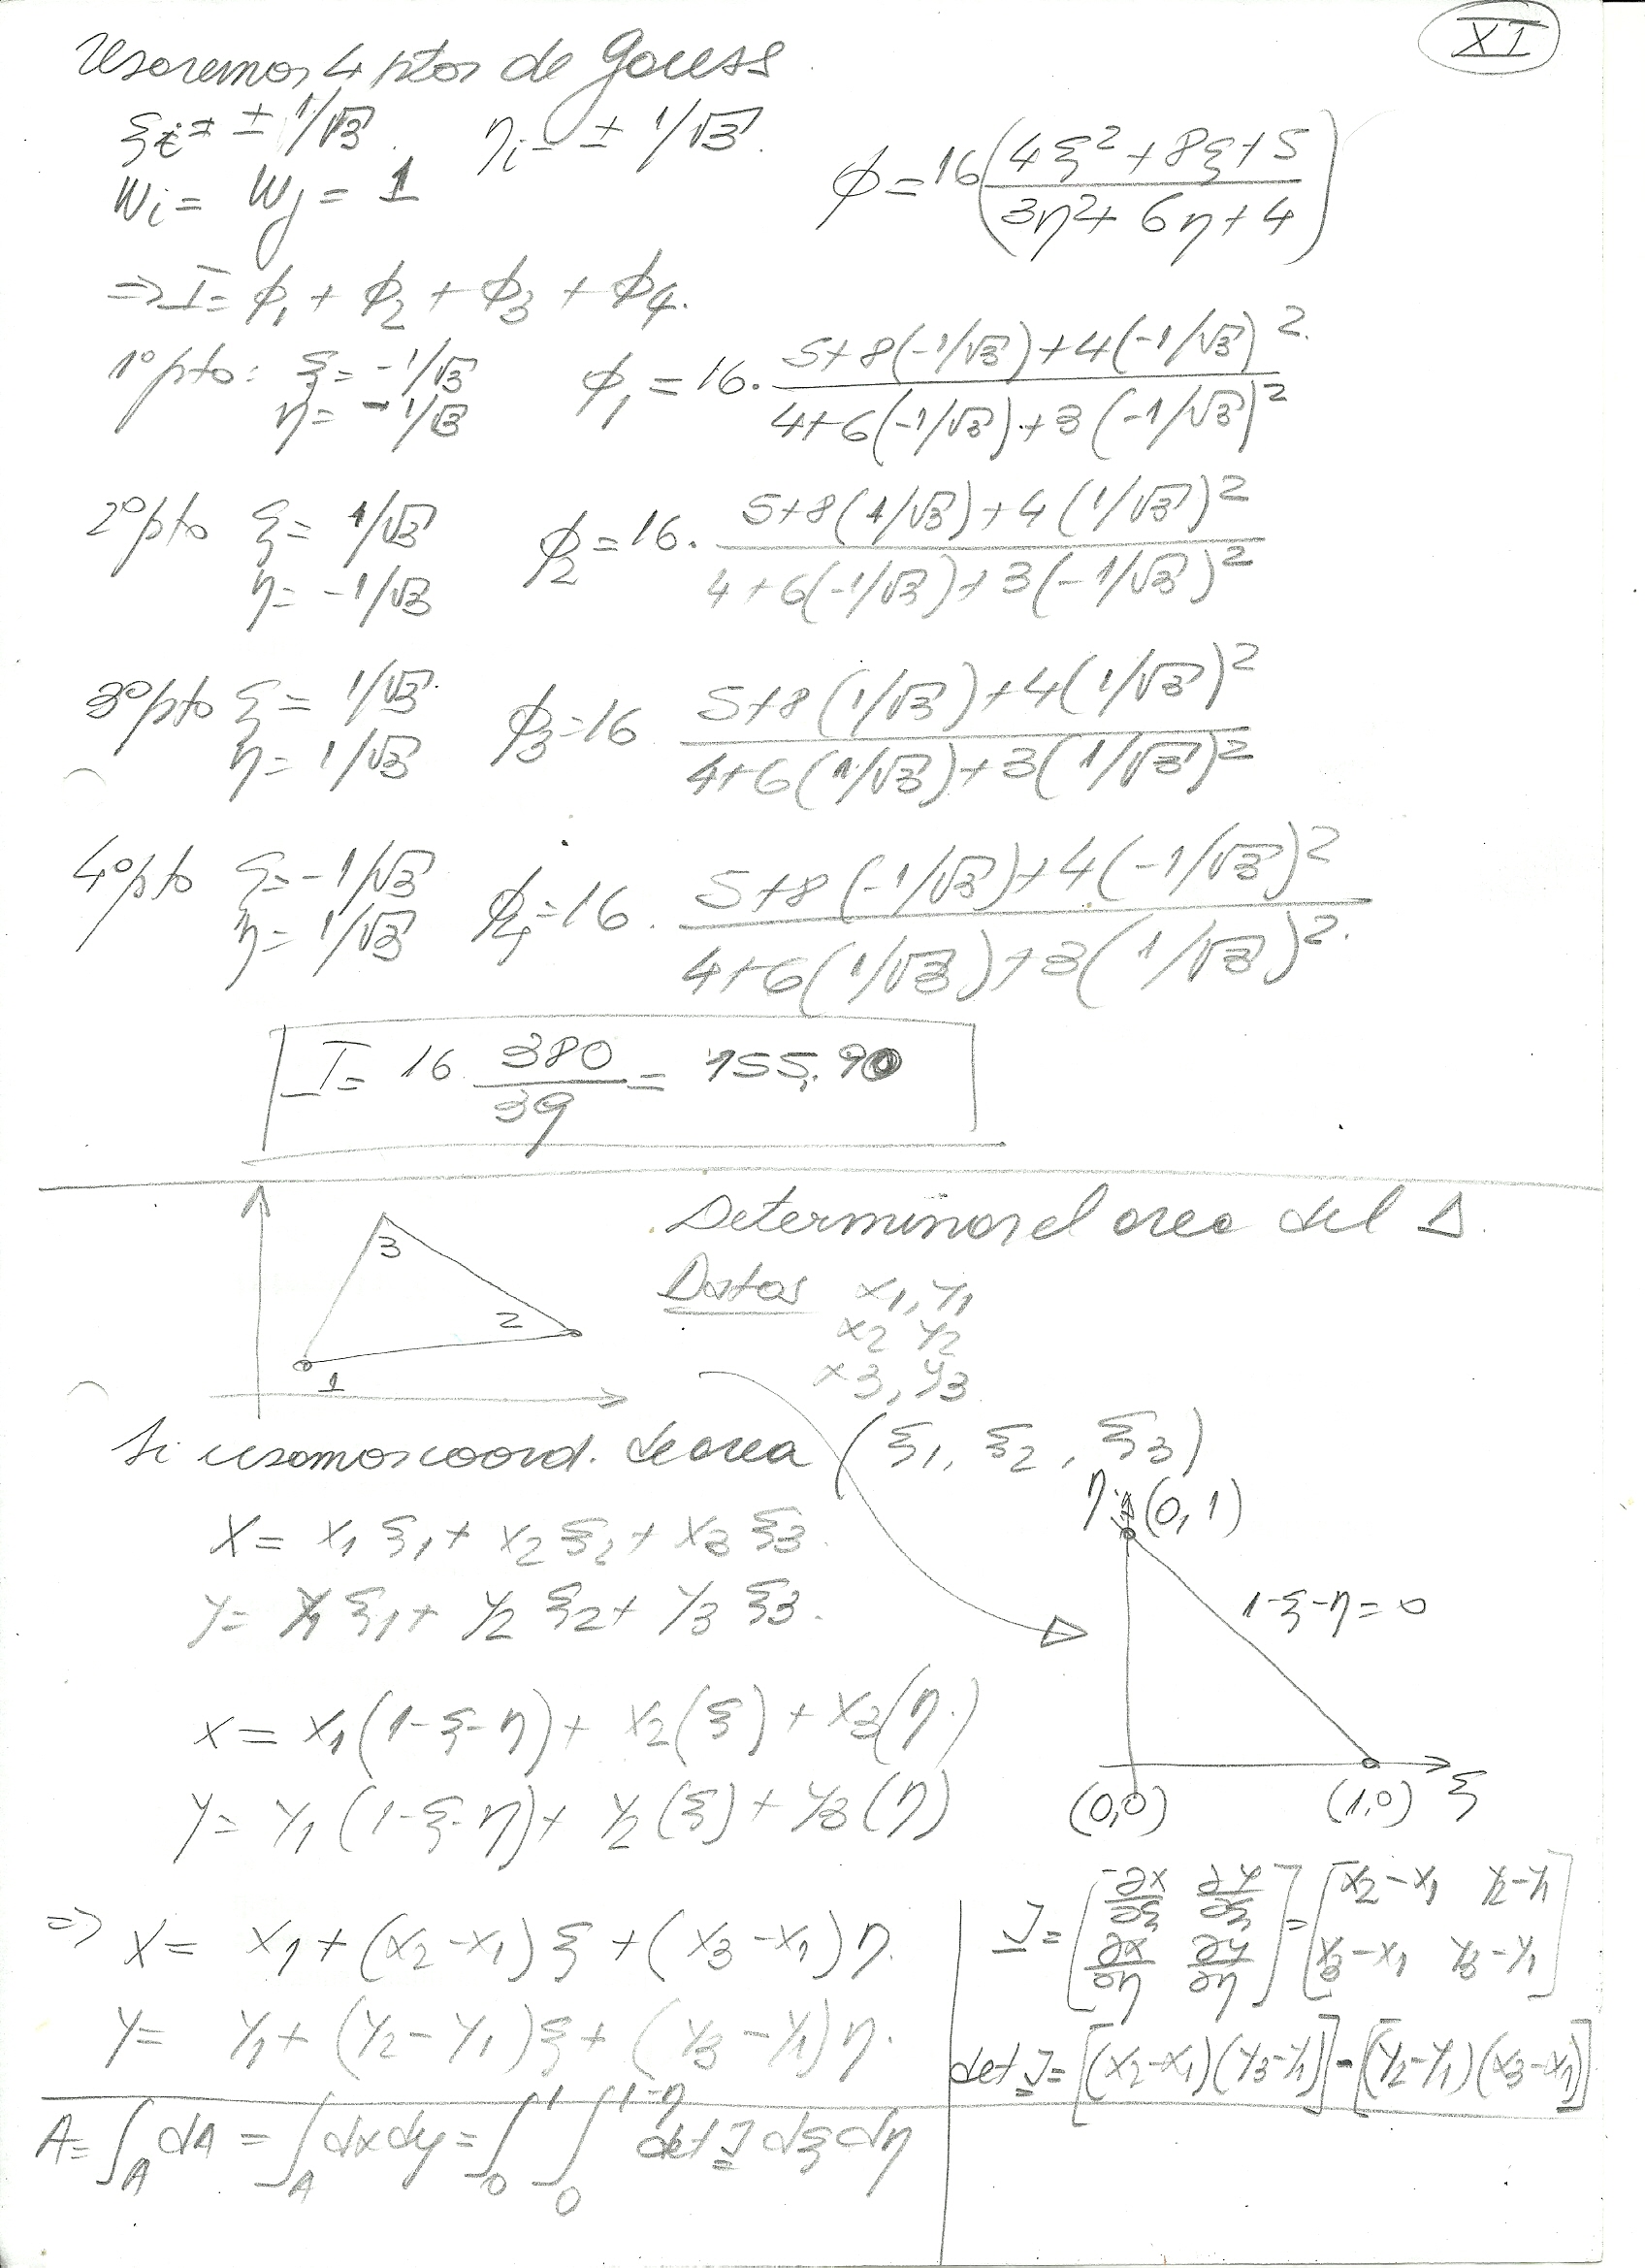 XI
Usaremos 4 ptos de Gauss
ξi = ± 1/√3. ηi = ± 1/√3.
Wi = Wj = 1
ϕ = 16 ( (4ξ² + 8ξ + 5) / (3η² + 6η + 4) )
⇒ I = ϕ1 + ϕ2 + ϕ3 + ϕ4.
1º pto: ξ = -1/√3 η = -1/√3 ϕ1 = 16. (5+8(-1/√3)+4(-1/√3)²) / (4+6(-1/√3)+3(-1/√3)²)
2º pto ξ = 1/√3 η = -1/√3 ϕ2 = 16. (5+8(1/√3)+4(1/√3)²) / (4+6(-1/√3)+3(-1/√3)²)
3º pto ξ = 1/√3 η = 1/√3 ϕ3 = 16 (5+8(1/√3)+4(1/√3)²) / (4+6(1/√3)+3(1/√3)²)
4º pto ξ = -1/√3 η = 1/√3 ϕ4 = 16. (5+8(-1/√3)+4(-1/√3)²) / (4+6(1/√3)+3(1/√3)²)
I = 16 380/39 = 155.90
Determinar el area del Δ.
3
2
1
Datos x1, y1
x2 y2
x3, y3
Si usamos coord. de area (ξ1, ξ2, ξ3)
x = x1 ξ1 + x2 ξ2 + x3 ξ3.
y = y1 ξ1 + y2 ξ2 + y3 ξ3.
η (0,1)
1-ξ-η = 0
(0,0) (1,0) ξ
x = x1(1-ξ-η) + x2(ξ) + x3(η.)
y = y1(1-ξ-η) + y2(ξ) + y3(η)
⇒ x = x1 + (x2-x1)ξ + (x3-x1)η.
y = y1 + (y2-y1)ξ + (y3-y1)η.
J = [∂x/∂ξ ∂y/∂ξ ; ∂x/∂η ∂y/∂η] = [x2-x1 y2-y1 ; x3-x1 y3-y1]
det J = [(x2-x1)(y3-y1)] - [(y2-y1)(x3-x1)]
A = ∫A dA = ∫A dxdy = ∫0^1 ∫0^1-η det J dξ dη